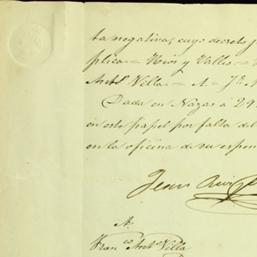 ta negativa, cuyo decreto
plica = Rios y Valles =
Antº Villa = A =
Dada en Nazas a 29
en este papel por falta del
en la oficina de su espen
A.
Franco Antº Villa